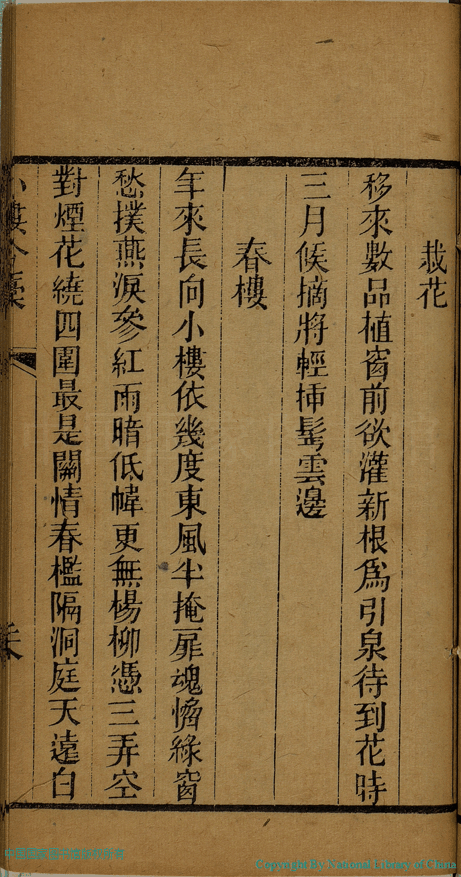 栽花
移來數品植窗前欲灌新根為引泉待到花時
三月候摘將輕揷髩雲邊
春樓
年來長向小樓依幾度東風半掩扉魂惱綠窗
愁撲燕淚參紅雨暗低幃更無楊柳憑三弄空
對煙花繞四圍最是關情春檻隔洞庭天遠白
小樓吟稾
Copyright by National Library of China